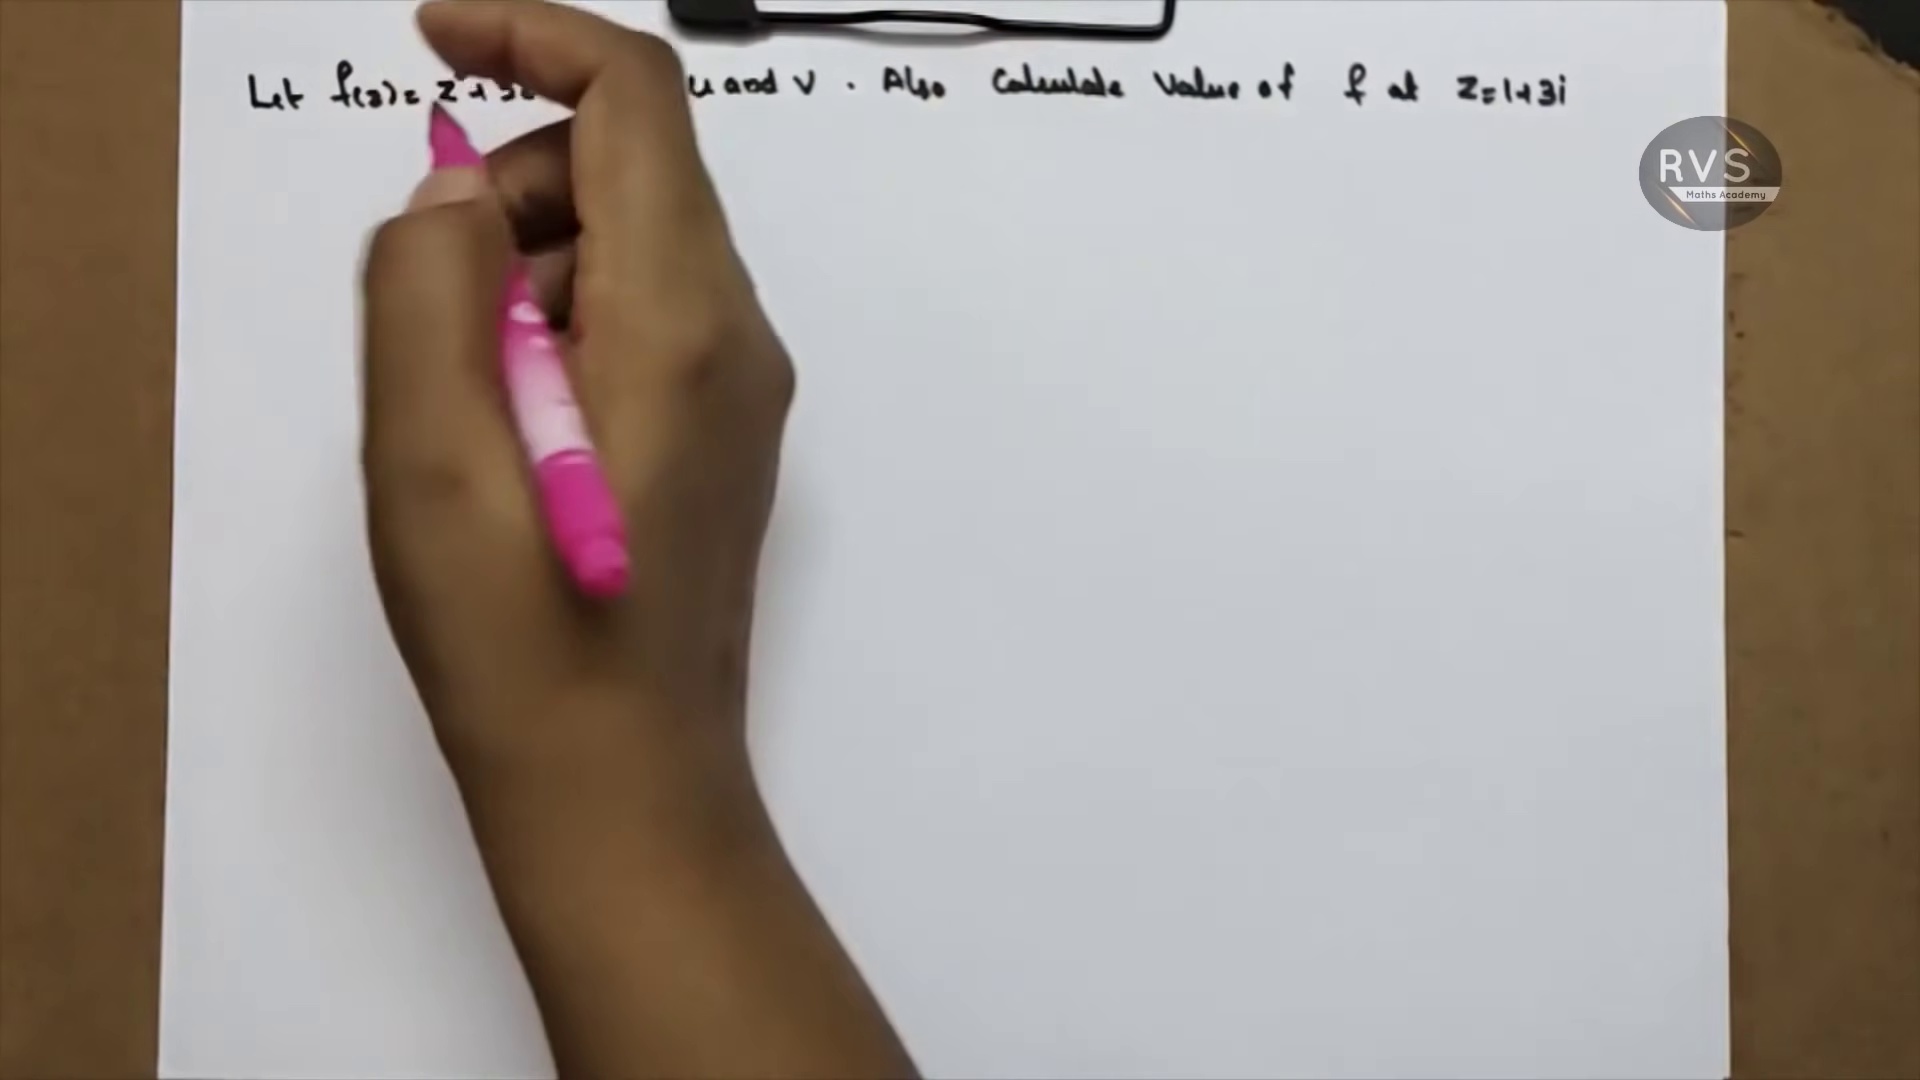 Let f(z) = z² + 3z u and v. Also Calculate Value of f at z=1+3i
RVS
Maths Academy